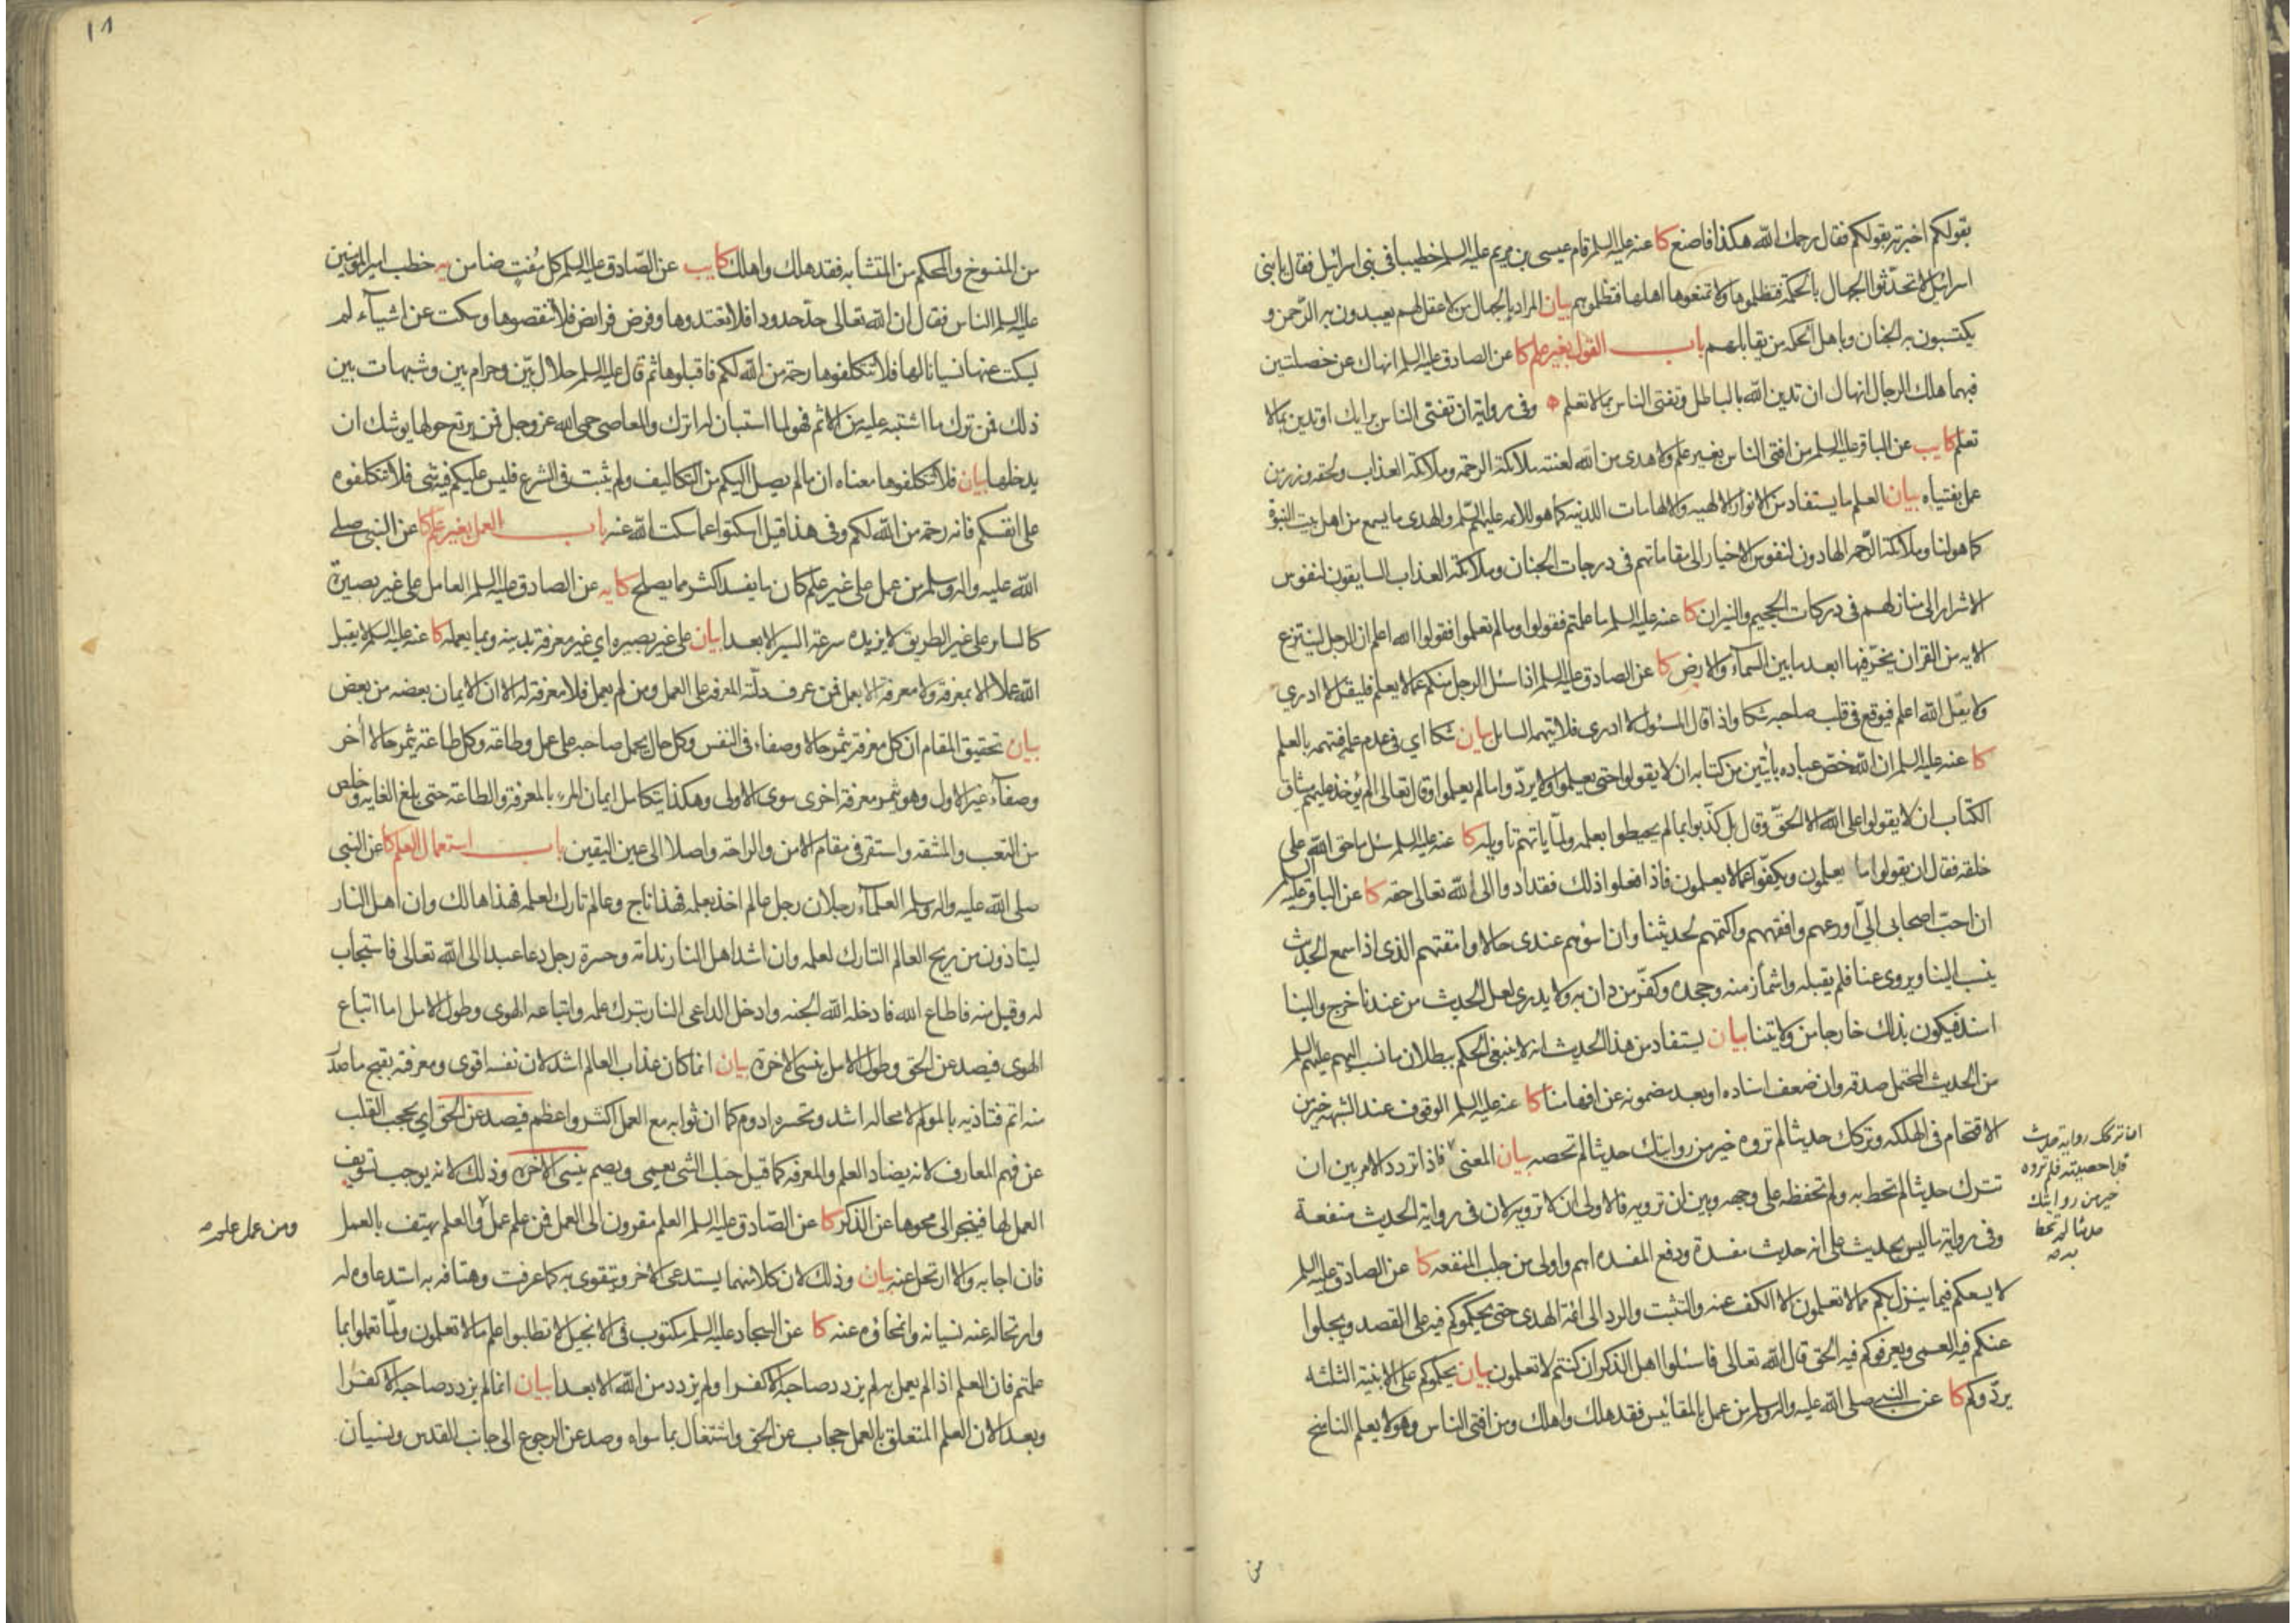 بقولكم اخبرته بقولكم فقال رحمك الله هكذا فاصنع كا عنه عليه السلم قام عيسى بن مريم عليه السلم خطيبا في بني اسرائيل فقال يا بني
اسرائيل لا تحدثوا الجهال بالحكمة فتظلموها ولا تمنعوها اهلها فتظلموهم بيان المراد بالجهال من لا عقل لهم يعبدون به الرحمن و
يكتسبون به الجنان وباهل الحكمة من يقابلهم باب القول بغير علم كا عن الصادق عليه السلم انهاك عن خصلتين
فيهما هلك الرجال انهاك ان تدين الله بالباطل وتفتى الناس بما لا تعلم وفى رواية ان تفتى الناس برايك او تدين بما لا
تعلم كا يب عن الباقر عليه السلم من افتى الناس بغير علم ولا هدى من الله لعنته ملائكة الرحمة وملائكة العذاب ولحقه وزر من
عمل بفتياه بيان العلم ما يستفاد من الانوار الالهيه والالهامات اللدنيه كما هو للائمه عليهم السلم والهدى ما يسمع من اهل بيت النبوة
كما هو لنا وملائكة الرحمه الهادون لنفوس الاخيار الى مقاماتهم فى درجات الجنان وملائكة العذاب السايقون لنفوس
الاشرار الى منازلهم فى دركات الجحيم والنيران كا عنه عليه السلم ما علمتم فقولوا وما لم تعلموا فقولوا الله اعلم ان الرجل لينتزع
الايه من القران يخر فيها ابعد ما بين السمآء والارض كا عن الصادق عليه السلم اذا سئل الرجل منكم عما لا يعلم فليقل لا ادري
ولا يقل الله اعلم فيوقع فى قلب صاحبه شكا واذا قال المسئول لا ادرى فلا يتهمه السائل بيان شكا اي فى عدم علمه فيتهمه بالعلم
كا عنه عليه السلم ان الله خص عباده بآيتين من كتابه ان لا يقولوا حتى يعلموا ولا يردّوا ما لم يعلموا وقال تعالى الم يؤخذ عليهم ميثاق
الكتاب ان لا يقولوا على الله الا الحق وقال بل كذّبوا بما لم يحيطوا بعلمه ولمّا ياتهم تأويله كا عنه عليه السلم سئل ما حق الله على
خلقه فقال ان يقولوا ما يعلمون ويكفّوا عما لا يعلمون فاذا فعلوا ذلك فقد ادوا الى الله تعالى حقه كا عن الباقر عليه السلم
ان احب اصحابى اليّ اورعهم وافقههم واكتمهم لحديثنا وان اسؤهم عندى حالا وامقتهم الذى اذا سمع الحديث
ينسب الينا ويروى عنا فلم يقبله واشمأز منه وجحده وكفّر من دان به ولا يدرى لعل الحديث من عندنا خرج والينا
اسند فيكون بذلك خارجا من ولايتنا بيان يستفاد من هذا الحديث انه لا ينبغى الحكم ببطلان ما نسب اليهم عليهم السلم
من الحديث المحتمل صدقه وان ضعف اسناده او بعد مضمونه عن افهامنا كا عنه عليه السلم الوقوف عند الشبهه خير من
الاقتحام فى الهلكه وتركك حديثا لم تروه خير من روايتك حديثا لم تحصه بيان المعنى فاذا تردد الامر بين ان
تترك حديثا لم تحط به ولم تحفظه على وجهه وبين ان ترويه فالاولى ان لا ترويه لان فى رواية الحديث منفعة
وفى رواية ما ليس بحديث على انه حديث مفسدة ودفع المفسده اهم واولى من جلب المنفعه كا عن الصادق عليه السلم
لا يسعكم فيما ينزل بكم مما لا تعلمون الا الكف عنه والتثبت والرد الى ائمة الهدى حتى يحكموكم فيه على القصد ويجلوا
عنكم فيه العمى ويعرفوكم فيه الحق قال الله تعالى فاسئلوا اهل الذكر ان كنتم لا تعلمون بيان يحكموكم على الابنية الثلثه
يردّوكم كا عن النبى صلى الله عليه واله وسلم من عمل بالمقائيس فقد هلك واهلك ومن افتى الناس وهو لا يعلم الناسخ
تركك رواية حديث
قد احصيته فلم تروه
خير من روايتك
حديثا لم تحط
به
من
١٨
من المنسوخ والمحكم من المتشابه فقد هلك واهلك كا يب عن الصّادق عليه السلم كل مُفتٍ ضامن يه خطب امير المؤمنين
عليه السلم الناس فقال ان الله تعالى حدّ حدودا فلا تعتدوها وفرض فرايض فلا تنقصوها وسكت عن اشيآء لم
يسكت عنها نسيانا لها فلا تتكلفوها رحمة من الله لكم فاقبلوها ثم قال عليه السلم حلال بيّن وحرام بين وشبهات بين
ذلك فمن ترك ما اشتبه عليه من الاثم فهو لما استبان له اترك والمعاصي حمى الله عز وجل فمن يرتع حولها يوشك ان
يدخلها بيان فلا تتكلفوها معناه ان ما لم يصل اليكم من التكاليف ولم يثبت فى الشرع فليس عليكم فيه شى فلا تتكلفوه
على انفسكم فانه رحمة من الله لكم وفى هذا قيل اسكتوا عما سكت الله عنه باب العمل بغير علم كا عن النبى صلى
الله عليه واله وسلم من عمل على غير علم كان ما يفسد اكثر مما يصلح كا يه عن الصادق عليه السلم العامل على غير بصيرة
كالسائر على غير الطريق لا يزيده سرعة السير الا بعدا بيان على غير بصيره اي غير معرفة بدينه وبما يعمله كا عنه عليه السلم لا يقبل
الله عملا الا بمعرفة ولا معرفة الا بعمل فمن عرف دلّته المعرفه على العمل ومن لم يعمل فلا معرفة له الا ان الايمان بعضه من بعض
بيان تحقيق المقام ان كل معرفة يثمر حالا وصفاء فى النفس وكل حال يحمل صاحبه على عمل وطاعة وكل طاعة يثمر حالا أخر
وصفآء غير الاول وهو يثمر معرفة اخرى سوى الاولى وهكذا يتكامل ايمان المرء بالمعرفة والطاعة حتى بلغ الغايه وخلص
من التعب والمشقه واستقر فى مقام الامن والراحة واصلا الى عين اليقين باب استعمال العلم كا عن النبى
صلى الله عليه واله وسلم العلمآء رجلان رجل عالم اخذ بعلمه فهذا ناج وعالم تارك لعلمه فهذا هالك وان اهل النار
ليتاذون من ريح العالم التارك لعلمه وان اشد اهل النار ندامة وحسرة رجل دعا عبدا الى الله تعالى فاستجاب
له وقبل منه فاطاع الله فادخله الله الجنه وادخل الداعى النار بترك علمه واتباعه الهوى وطول الامل اما اتباع
الهوى فيصد عن الحق وطول الامل ينسى الاخرة بيان انما كان عذاب العالم اشد لان نفسه اقوى ومعرفته بقبح ما صدر
منه اتم فتاذيه بالمولم لا محاله اشد وتحسره ادوم كما ان ثوابه مع العمل اكثر واعظم فيصد عن الحق اي يحجب القلب
عن فهم المعارف لانه يضاد العلم والمعرفه كما قيل حبك الشى يعمى ويصم ينسى الاخره وذلك لانه يوجب تسويف
العمل لها فينجر الى محوها عن الذكر كا عن الصّادق عليه السلم العلم مقرون الى العمل فمن علم عمل والعلم يهتف بالعمل
فان اجابه والا ارتحل عنه بيان وذلك لان كلا منهما يستدعى الاخر ويتقوى به كما عرفت وهتافه به استدعاوه له
وارتحاله عنه نسيانه وانمحاؤه عنه كا عن السجاد عليه السلم مكتوب فى الانجيل لا تطلبوا علم ما لا تعلمون ولمّا تعملوا بما
علمتم فان العلم اذا لم يعمل به لم يزدد صاحبه الا كفرا ولم يزدد من الله الا بعدا بيان انما لم يزدد صاحبه الا كفرا
وبعدا لان العلم المتعلق بالعمل حجاب عن الحق واشتغال بما سواه وصد عن الرجوع الى جانب القدس ونسيان
ومن عمل علم